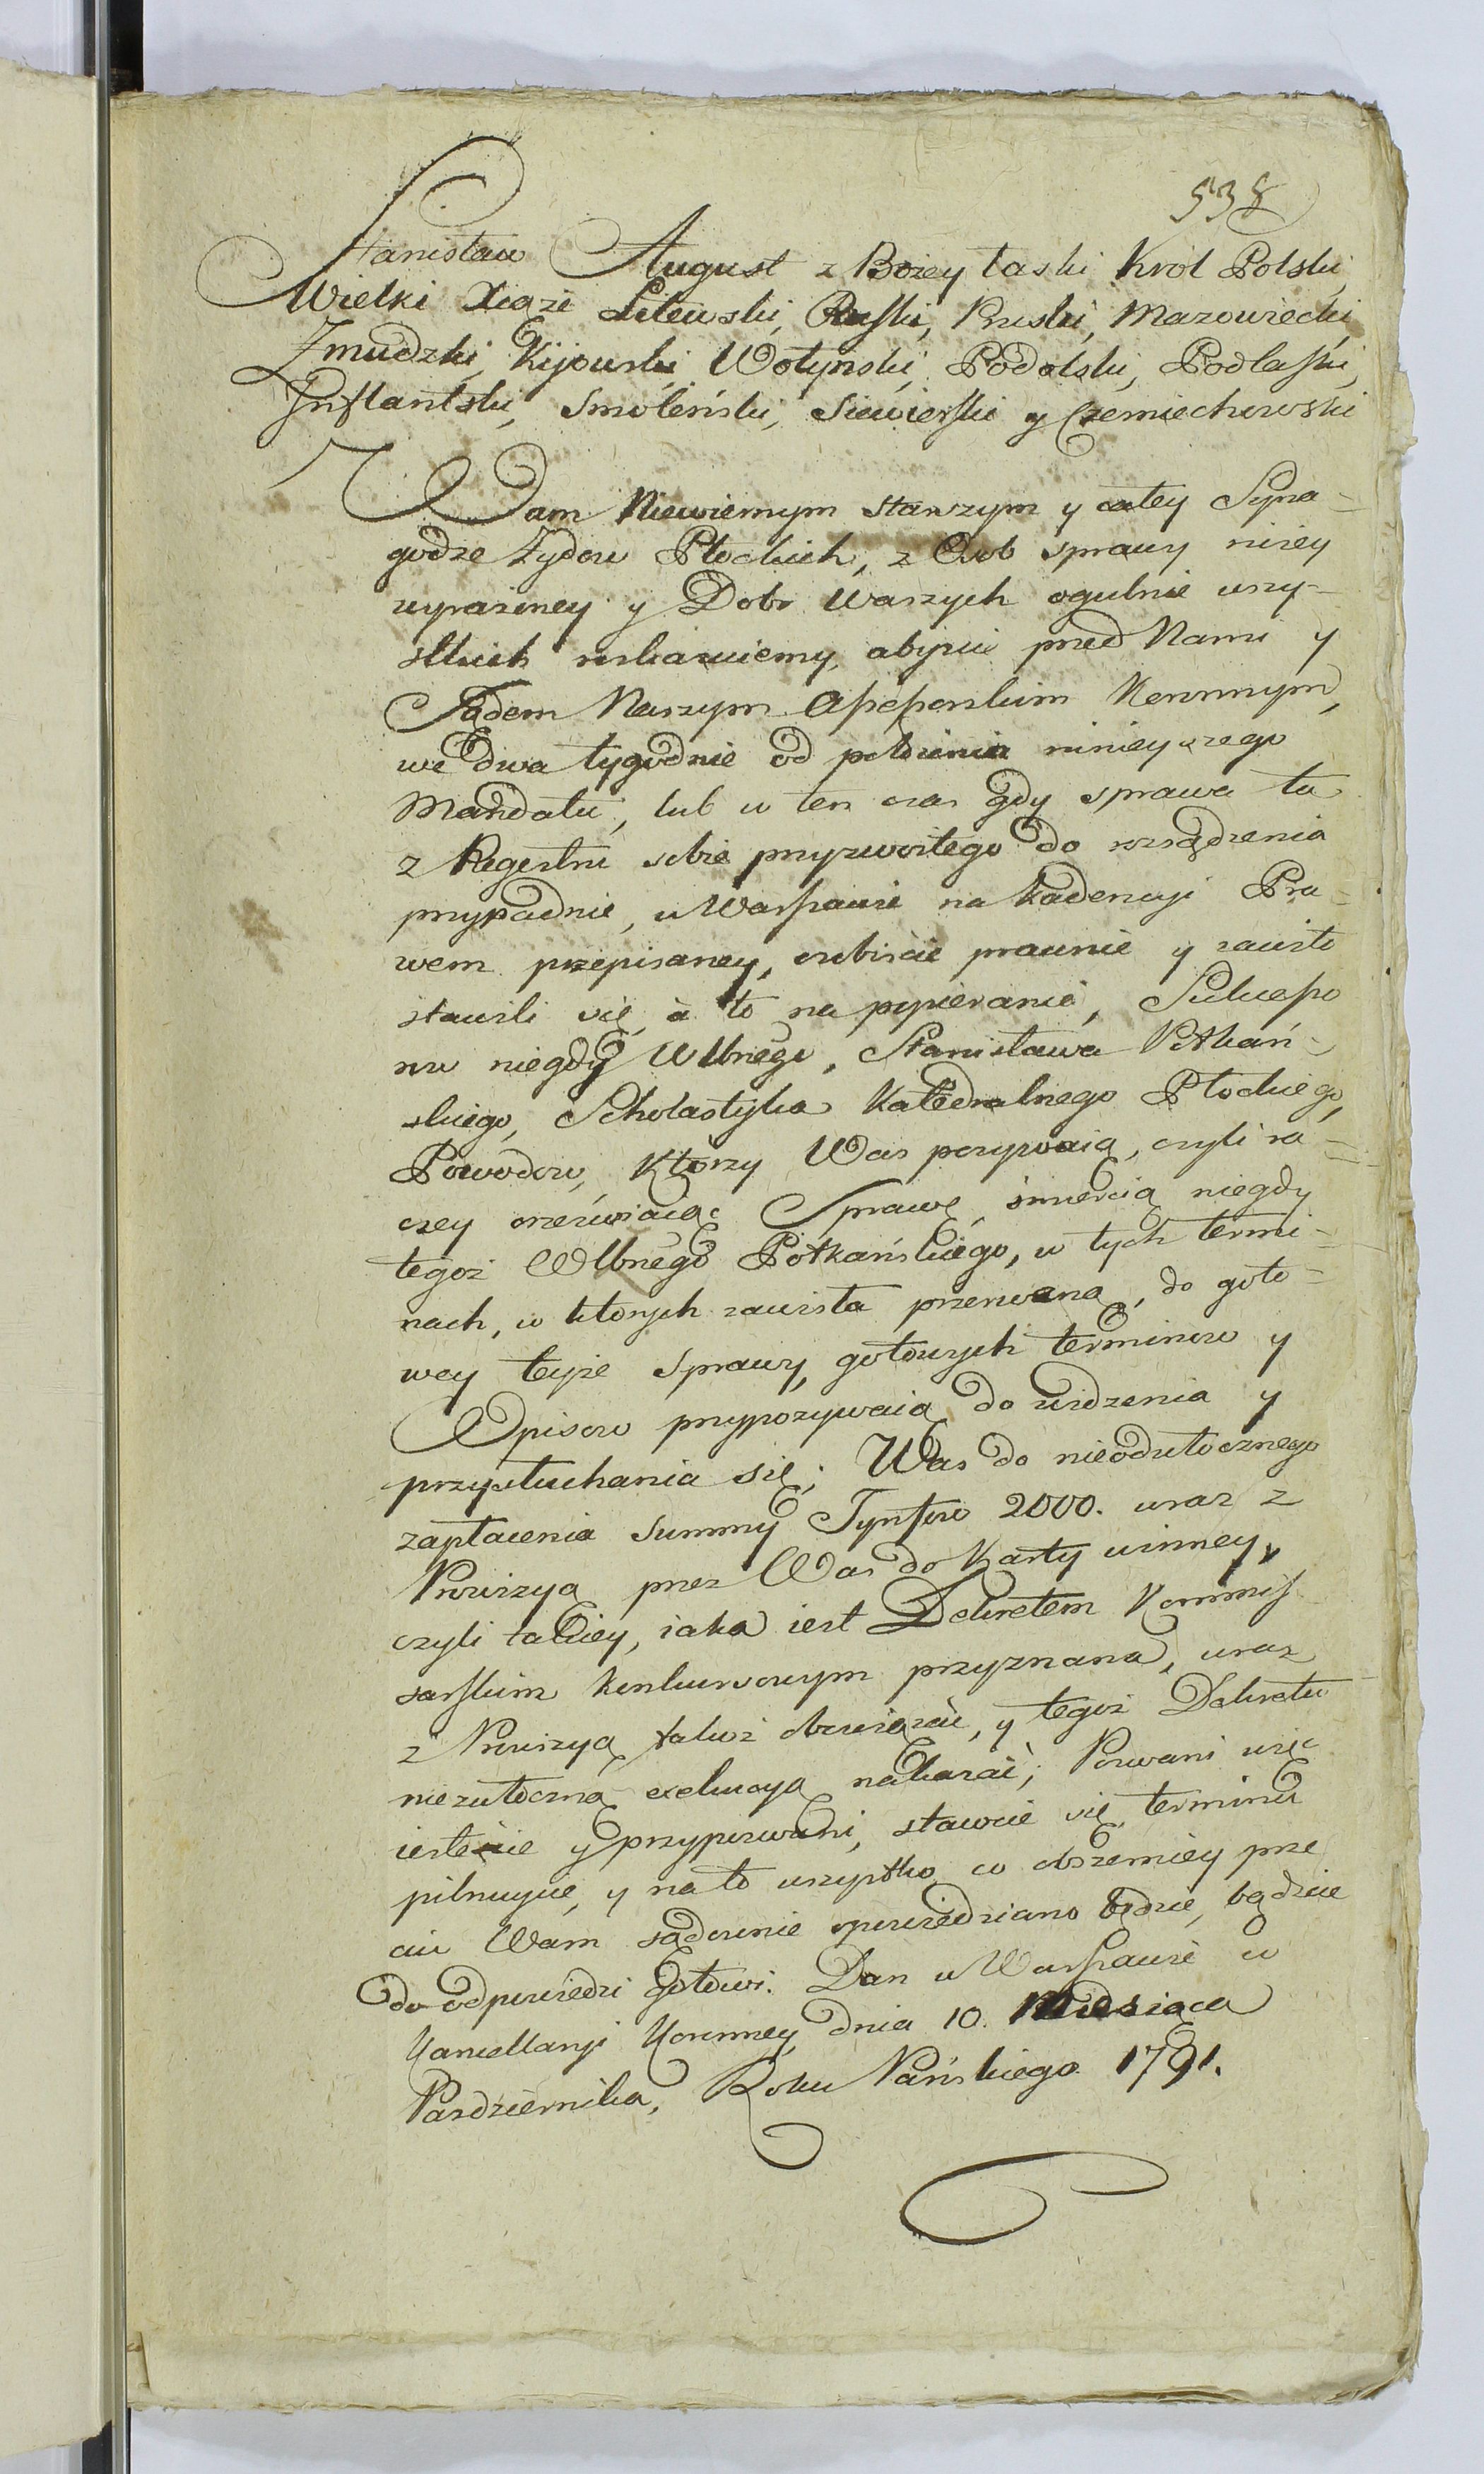 538
Stanisław August z Bożey łaski Krol Polski,
Wielki Xiąże Litewski, Ruski, Pruski, Mazowiecki,
Zmudzki, Kijowski, Wołyński, Podolski, Podlaski,
Inflantski, Smoleński, Siewierski y Czerniechowski
Wam Niewiernym starszym y całey Syna-
godze Zydow Płockich, z Osob sprawy niżey
wyrażoney y Dobr Waszych ogulnie wszy-
stkich roskazuiemy, abyście przed Nami y
Sądem Naszym Assessorskim Koronnym,
we dwa tygodnie od położenia ninieyszego
Mandatu, lub w ten czas gdy sprawa ta
z Regestru sobie przyzwoitego do rozsądzenia
przypadnie, w Warszawie na kadencyi Pra-
wem przepisaney, osobiście prawnie y zawito
stawili się, à to na popieranie, Sukcesso
row niegdy Wlbnego, Stanisława Potkań-
skiego, Scholastyka Katedralnego Płockiego,
Powodow, Ktorzy Was pozywaią, czyli ra-
czey orzeźwiaiąc Sprawę, śmiercią niegdy
tegoż Wlbnego Potkańskiego, w tych termi-
nach, w ktorych zawisła przerwaną, do goto-
wey teyże sprawy, gotowych terminow y
Opisow przypozywaią do widzenia y
przysłuchania się; Was do nieodwłocznego
zapłacenia Summy Tynfow 2000. wraz z
Prowizyą przez Was do Karty winney,
czyli takiey, iaka iest Dekretem Kommis
sarskim konkursowym przyznana, wraz
z Prowizyą takoż obowiązać, y tegoż Dekretu
niezwłoczną exekucyą nakazać; Pozwani więc
iesteście y przypozwani, stawcie się, terminu
pilnuycie, y na to wszystko co obszerniey prze
ciw Wam sądownie opowiedziano będzie, bądźcie
do odpowiedzi gotowi. Dan w Warszawie w
Kancellaryi Koronney dnia 10. Miesiąca
Pazdziernika, Roku Pańskiego 1791.